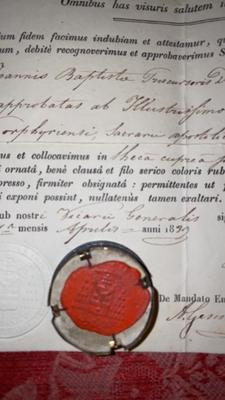 Omnibus has visuris salutem
um fidem facimus indubiam et attestamur, qu
um, debitè recognoverimus et approbaverimus S
oannis Baptistæ Præcursoris D
approbatas ab Illustrissimo
orphyriensi, Sacrarii apostoli
us et collocavimus in theca cuprea
i ornatâ, bene clausâ et filo serico coloris rub
presso, firmiter obsignatâ: permittentes ut
i exponi possint, nullatenùs tamen exaltari.
ub nostri Vicarii Generalis
mensis Aprilis anni 18
De Mandato Em